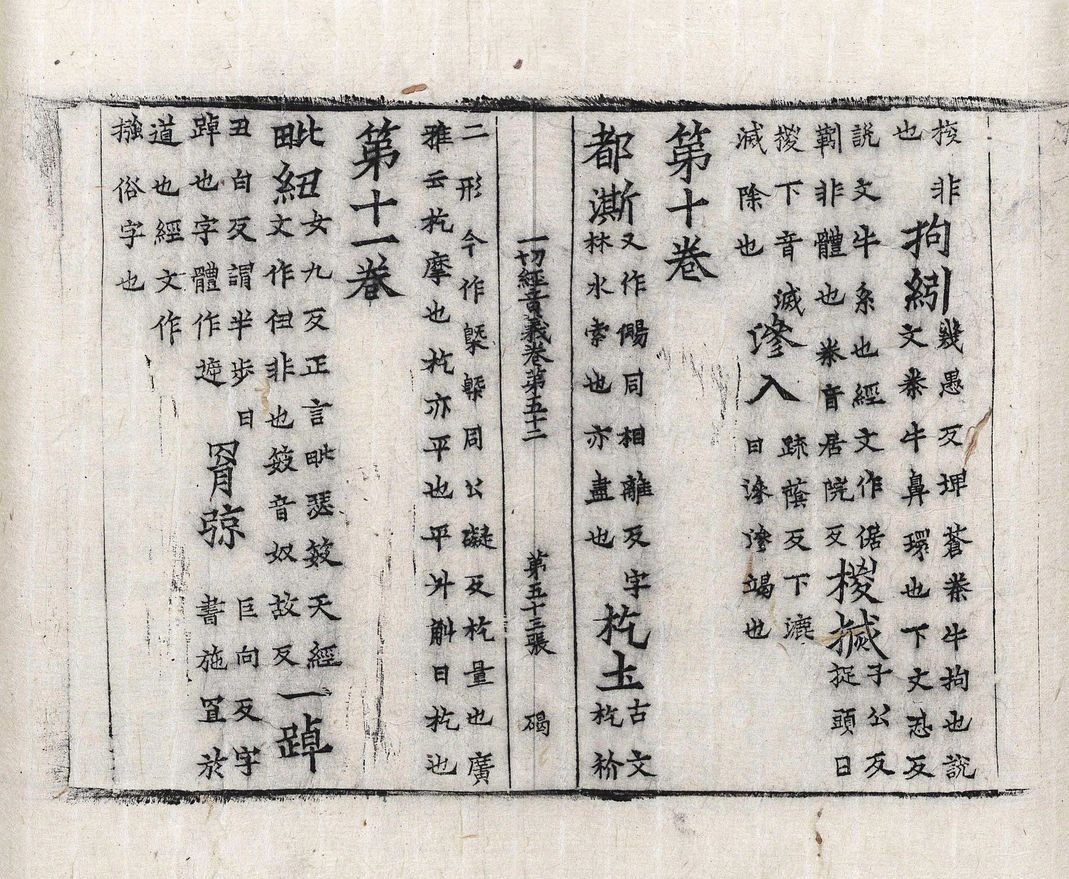 非
也
拘紖
幾愚反埤蒼桊牛拘也說
文桊牛鼻環也下文忍反
說文牛系也經文作倨
靷非體也桊音居院反
椶㨒
子公反
捉頭曰
椶下音滅
滅除也
滲入
疎蔭反下漉
曰滲滲竭也
第十卷
都澌
又作儩同相離反字
林水索也亦盡也
杚土
古文
杚扴
一切經音義卷第五十二　第五十三張　碣
二形今作槩㮣同公礙反杚量也廣
雅云杚摩也杚亦平也平斗斛曰杚也
第十一卷
毗紐
女九反正言毗瑟笯天經
文作非也笯音奴故反
一踔
丑白反謂半步曰
踔也字體作逴
罥弶
巨向反字
書施罝於
道也經文作
摾俗字也